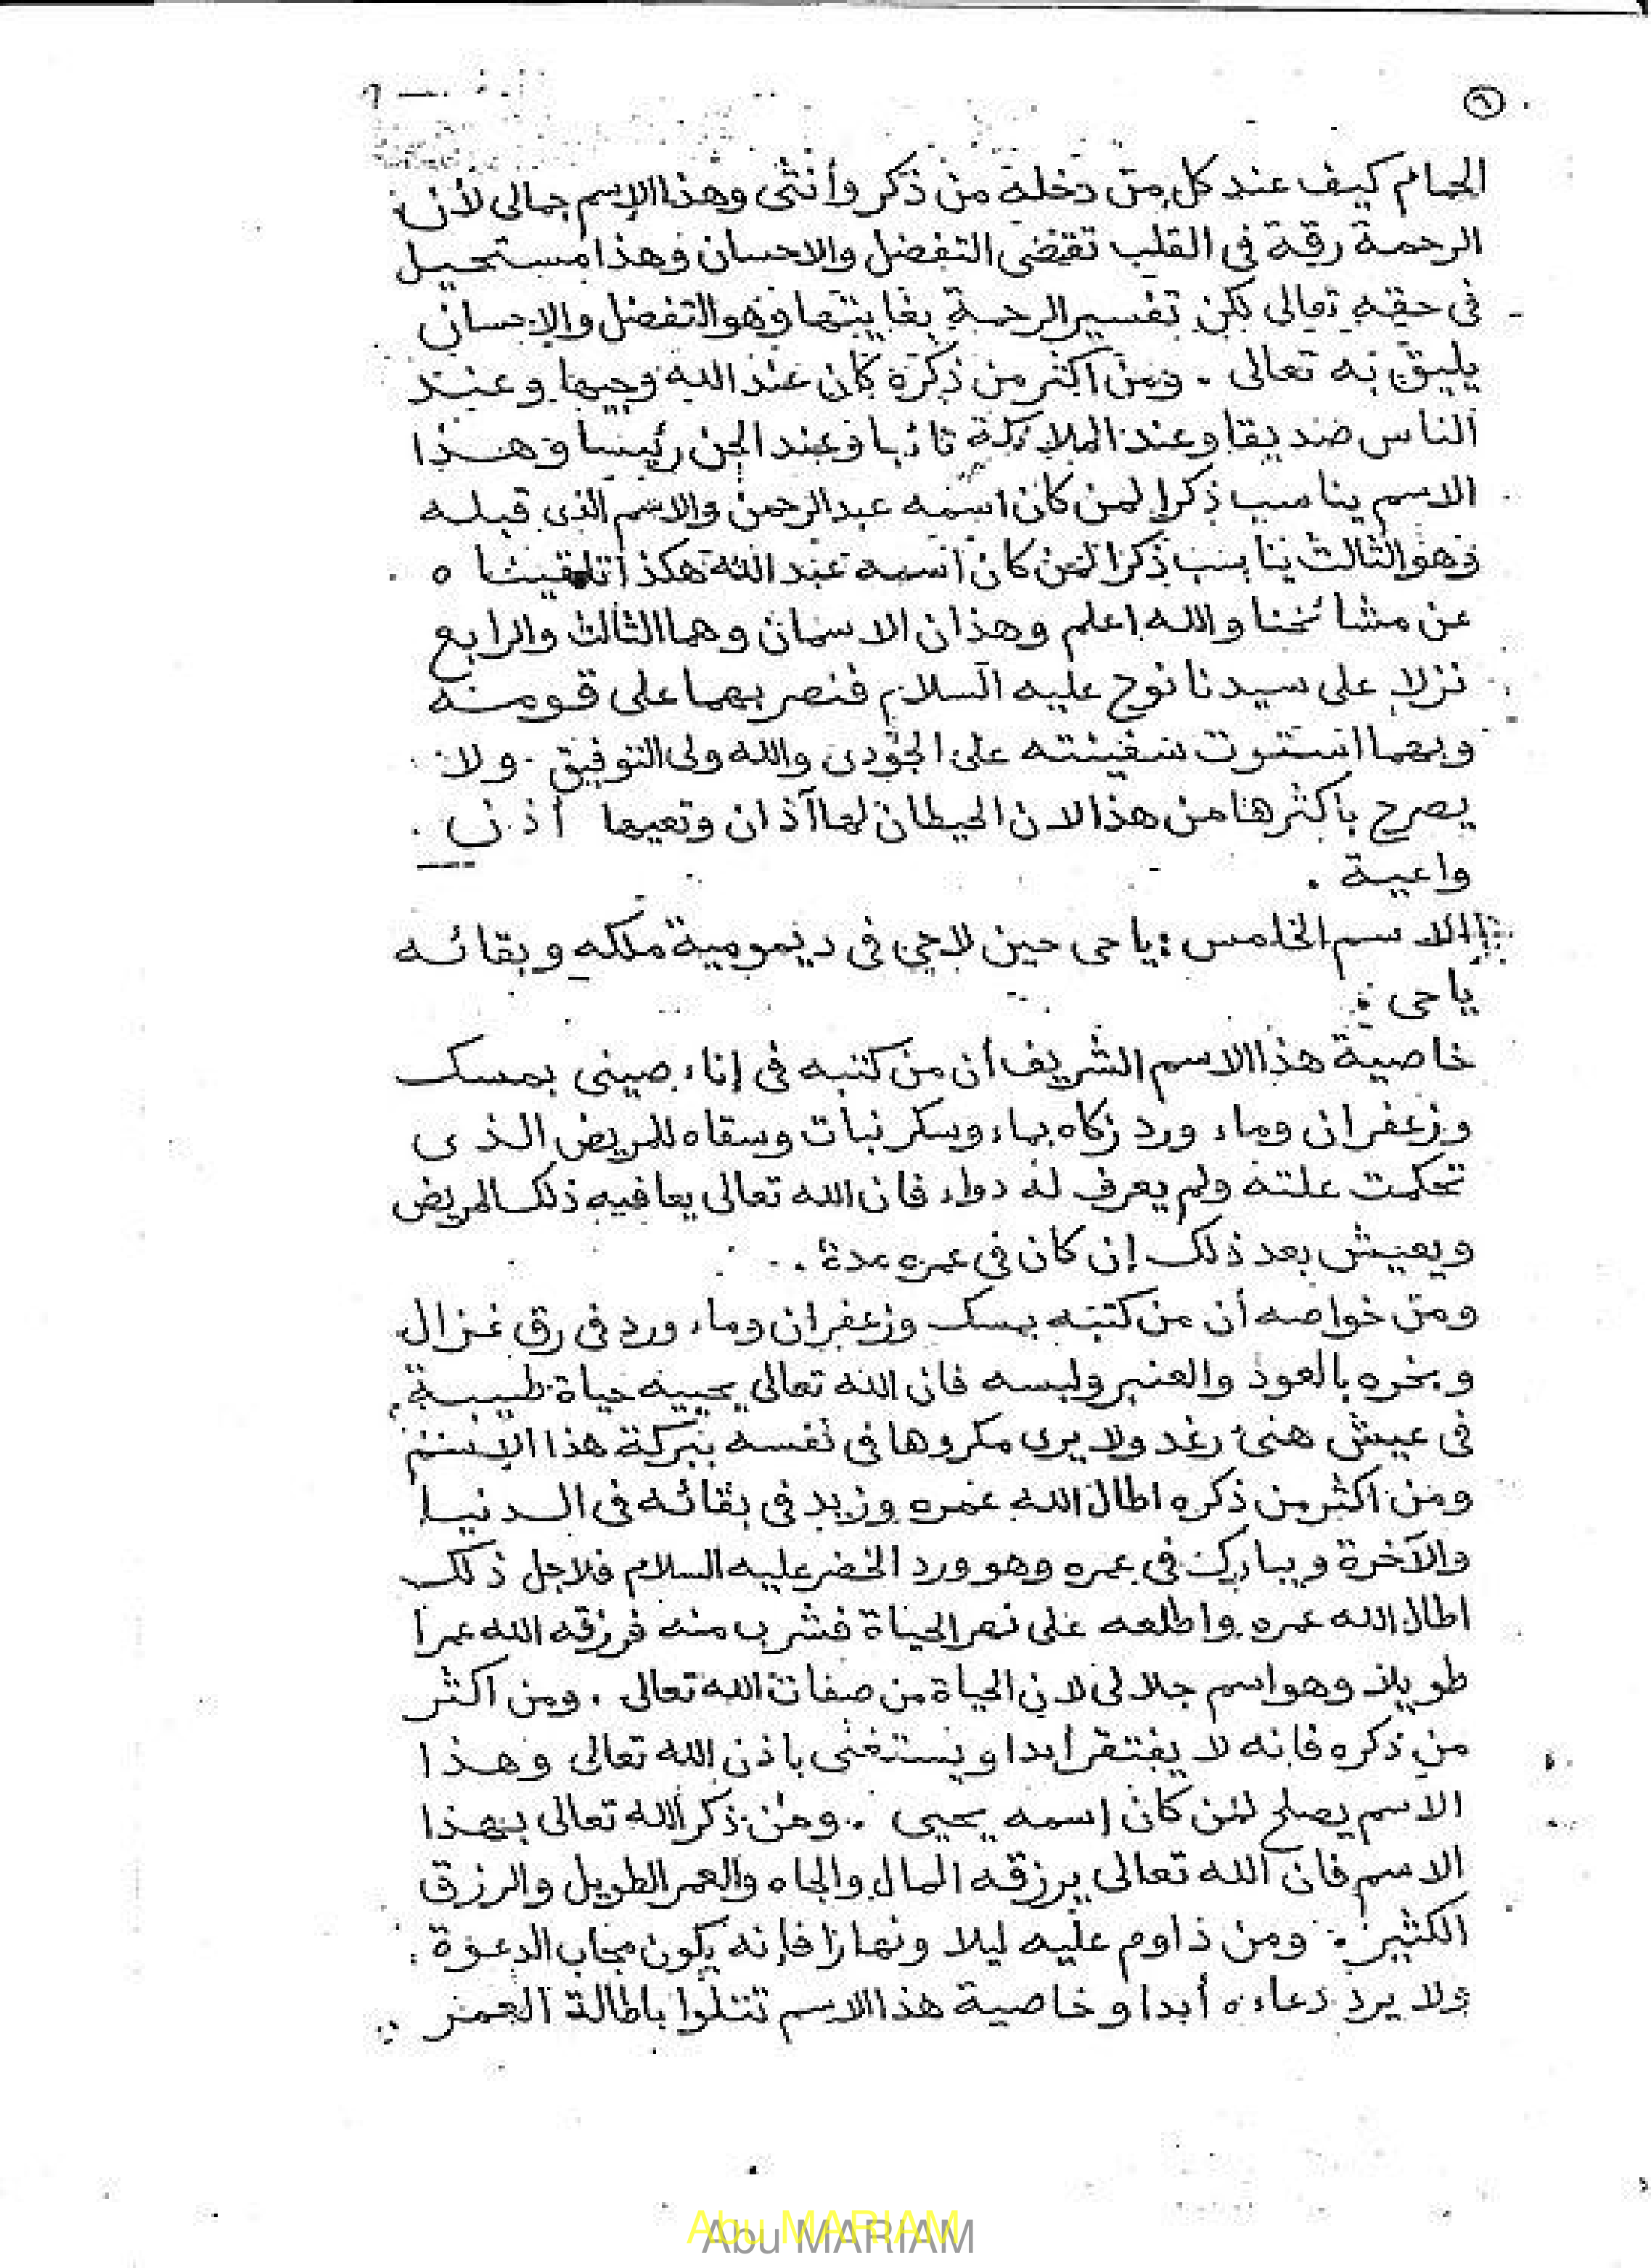 ٦
الحمام كيف عند كل من دخله من ذكر وأنثى وهذا الإسم جمالى لأن
الرحمة رقة فى القلب تقتضى التفضل والاحسان وهذا مستحيل
فى حقه تعالى لكن تفسير الرحمة بغايتها وهو التفضل والإحسان
يليق به تعالى . ومن اكثر من ذكره كان عند الله وجيها وعند
الناس صديقا وعند الملائكة تائبا وعند الجن رئيسا وهذا
الاسم يناسب ذكرا لمن كان اسمه عبد الرحمن والاسم الذى قبله
وهو الثالث يناسب ذكرا لمن كان اسمه عبد الله هكذا تلقينا ه
عن مشائخنا والله اعلم وهذان الاسمان وهما الثالث والرابع
نزلا على سيدنا نوح عليه السلام فنصر بهما على قومه
وبهما استوت سفينته على الجودى والله ولى التوفيق . ولا
يصرح بأكثر هنا من هذا لان الحيطان لها آذان وتعيها أذن
واعية .
الاسم الخامس : يا حى حين لا حى فى ديمومية ملكه وبقائه
يا حى :
خاصية هذا الاسم الشريف أن من كتبه فى إناء صينى بمسك
وزعفران وماء ورد زكاه بماء وسكر نبات وسقاه للمريض الذى
تحكمت علته ولم يعرف له دواء فان الله تعالى يعافيه ذلك المريض
ويعيش بعد ذلك إن كان فى عمره مدة .
ومن خواصه أن من كتبه بمسك وزعفران وماء ورد فى رق غزال
وبخره بالعود والعنبر ولبسه فان الله تعالى يحييه حياة طيبة
فى عيش هنئ رغد ولا يرى مكروها فى نفسه ببركة هذا الاسم
ومن اكثر من ذكره اطال الله عمره وزيد فى بقائه فى الدنيا
والآخرة ويبارك فى عمره وهو ورد الخضر عليه السلام فلاجل ذلك
اطال الله عمره واطلعه على نهر الحياة فشرب منه فرزقه الله عمرا
طويلا وهو اسم جلالى لان الحياة من صفات الله تعالى . ومن اكثر
من ذكره فانه لا يفتقر ابدا ويستغنى باذن الله تعالى وهذا
الاسم يصلح لمن كان إسمه يحيى . ومن ذكر الله تعالى بهذا
الاسم فان الله تعالى يرزقه المال والجاه والعمر الطويل والرزق
الكثير : ومن داوم عليه ليلا ونهارا فإنه يكون مجاب الدعوة
ولا يرد دعاءه أبدا وخاصية هذا الاسم تتلوا باطالة العمر
Abu MARIAM